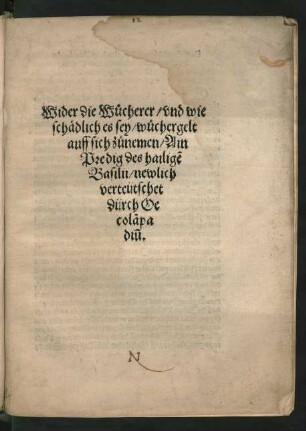 Wider die Wůcherer/vnd wie
schådlich es sey/wůchergelt
auff sich zůnemen/Ain
Predig des hailigē
Basilij/newlich
verteütschet
důrch Oe
colāpa
diū.
N